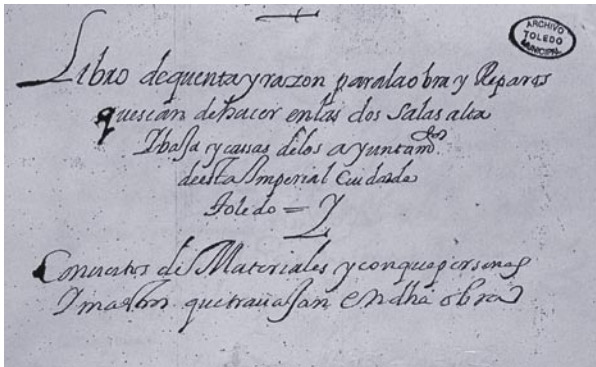 ARCHIVO
TOLEDO
MUNICIPAL
Libro dequenta y razon para la obra y Reparos
quesean dehacer en las dos salas alta
Y baja y cassas delos ayuntamos
deesta Imperial Ciudad de
Toledo = Y
Conciertos de Materiales y conque personas
Y maestros que trauajan en dha obra